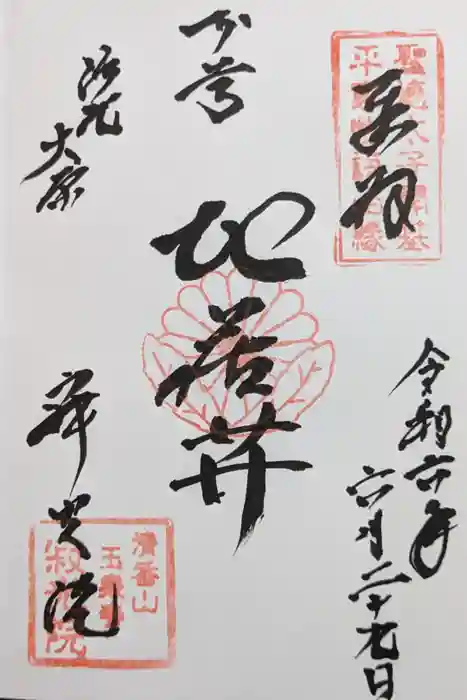 聖徳太子開基
平家物語由縁
奉拝
令和六年
六月二十九日
本尊
地蔵𦬇
洛北
大原
寂光院
清香山
玉泉寺
寂光院